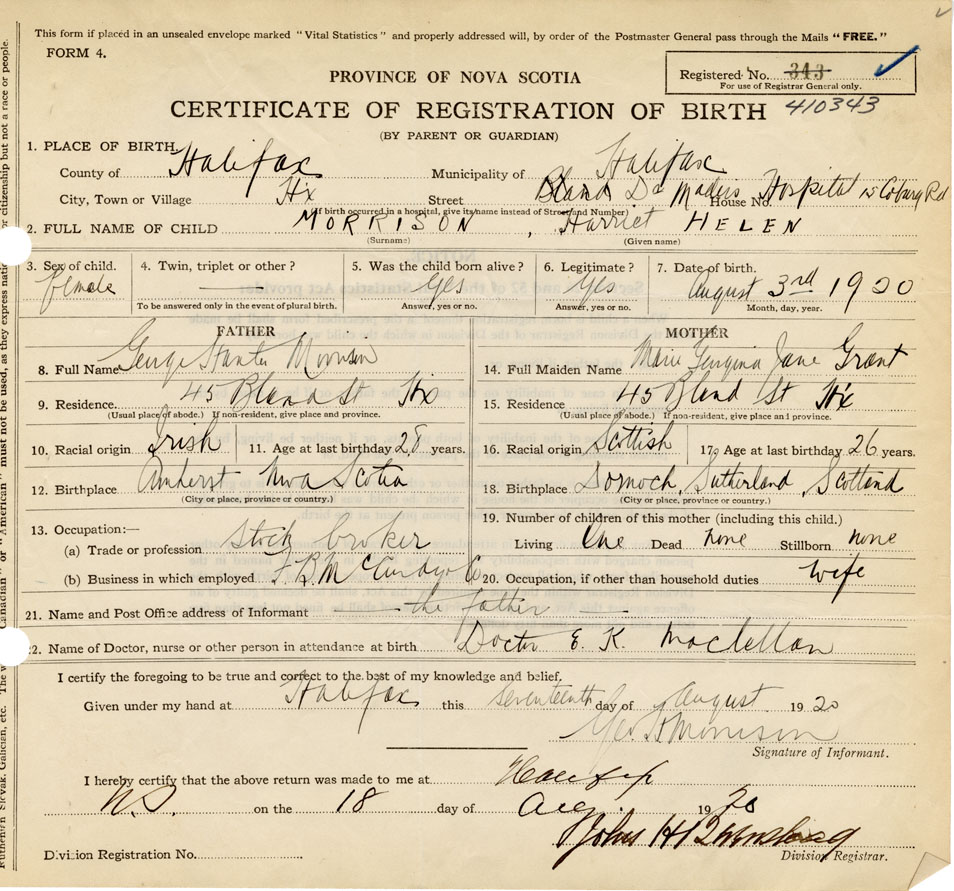 This form if placed in an unsealed envelope marked "Vital Statistics" and properly addressed will, by order of the Postmaster General pass through the Mails "FREE."
FORM 4.
Registered No. 343
For use of Registrar General only.
PROVINCE OF NOVA SCOTIA
CERTIFICATE OF REGISTRATION OF BIRTH 410343
(BY PARENT OR GUARDIAN)
1. PLACE OF BIRTH.
County of Halifax Municipality of Halifax
City, Town or Village Hx Street House No. Hospital 15 Coburg Rd
(If birth occurred in a hospital, give its name instead of Street and Number)
2. FULL NAME OF CHILD MORRISON , Harriet HELEN
(Surname) (Given name)
3. Sex of child. 4. Twin, triplet or other? 5. Was the child born alive? 6. Legitimate? 7. Date of birth.
female — Yes Yes August 3rd 1920
To be answered only in the event of plural birth. Answer, yes or no. Answer, yes or no. Month, day, year.
FATHER MOTHER
8. Full Name George Morrison 14. Full Maiden Name Marie Georgina Jane Grant
9. Residence. 45 Bland St Hx 15. Residence 45 Bland St Hx
(Usual place of abode.) If non-resident, give place and province. (Usual place of abode.) If non-resident, give place and province.
10. Racial origin Irish 11. Age at last birthday 28 years. 16. Racial origin Scottish 17. Age at last birthday 26 years.
12. Birthplace Amherst Nova Scotia 18. Birthplace Dornoch, Sutherland, Scotland
(City or place, province or country.) (City or place, province or country.)
13. Occupation:— 19. Number of children of this mother (including this child.)
(a) Trade or profession stock broker Living One Dead none Stillborn none
(b) Business in which employed F.B. McCurdy Co 20. Occupation, if other than household duties wife
21. Name and Post Office address of Informant — the father —
22. Name of Doctor, nurse or other person in attendance at birth Doctor E. K. Maclellan
I certify the foregoing to be true and correct to the best of my knowledge and belief.
Given under my hand at Halifax this seventeenth day of August 1920
Geo. S. Morrison
Signature of Informant.
I hereby certify that the above return was made to me at Halifax
N.S. on the 18 day of Aug 1920
John H
Division Registration No. Division Registrar.